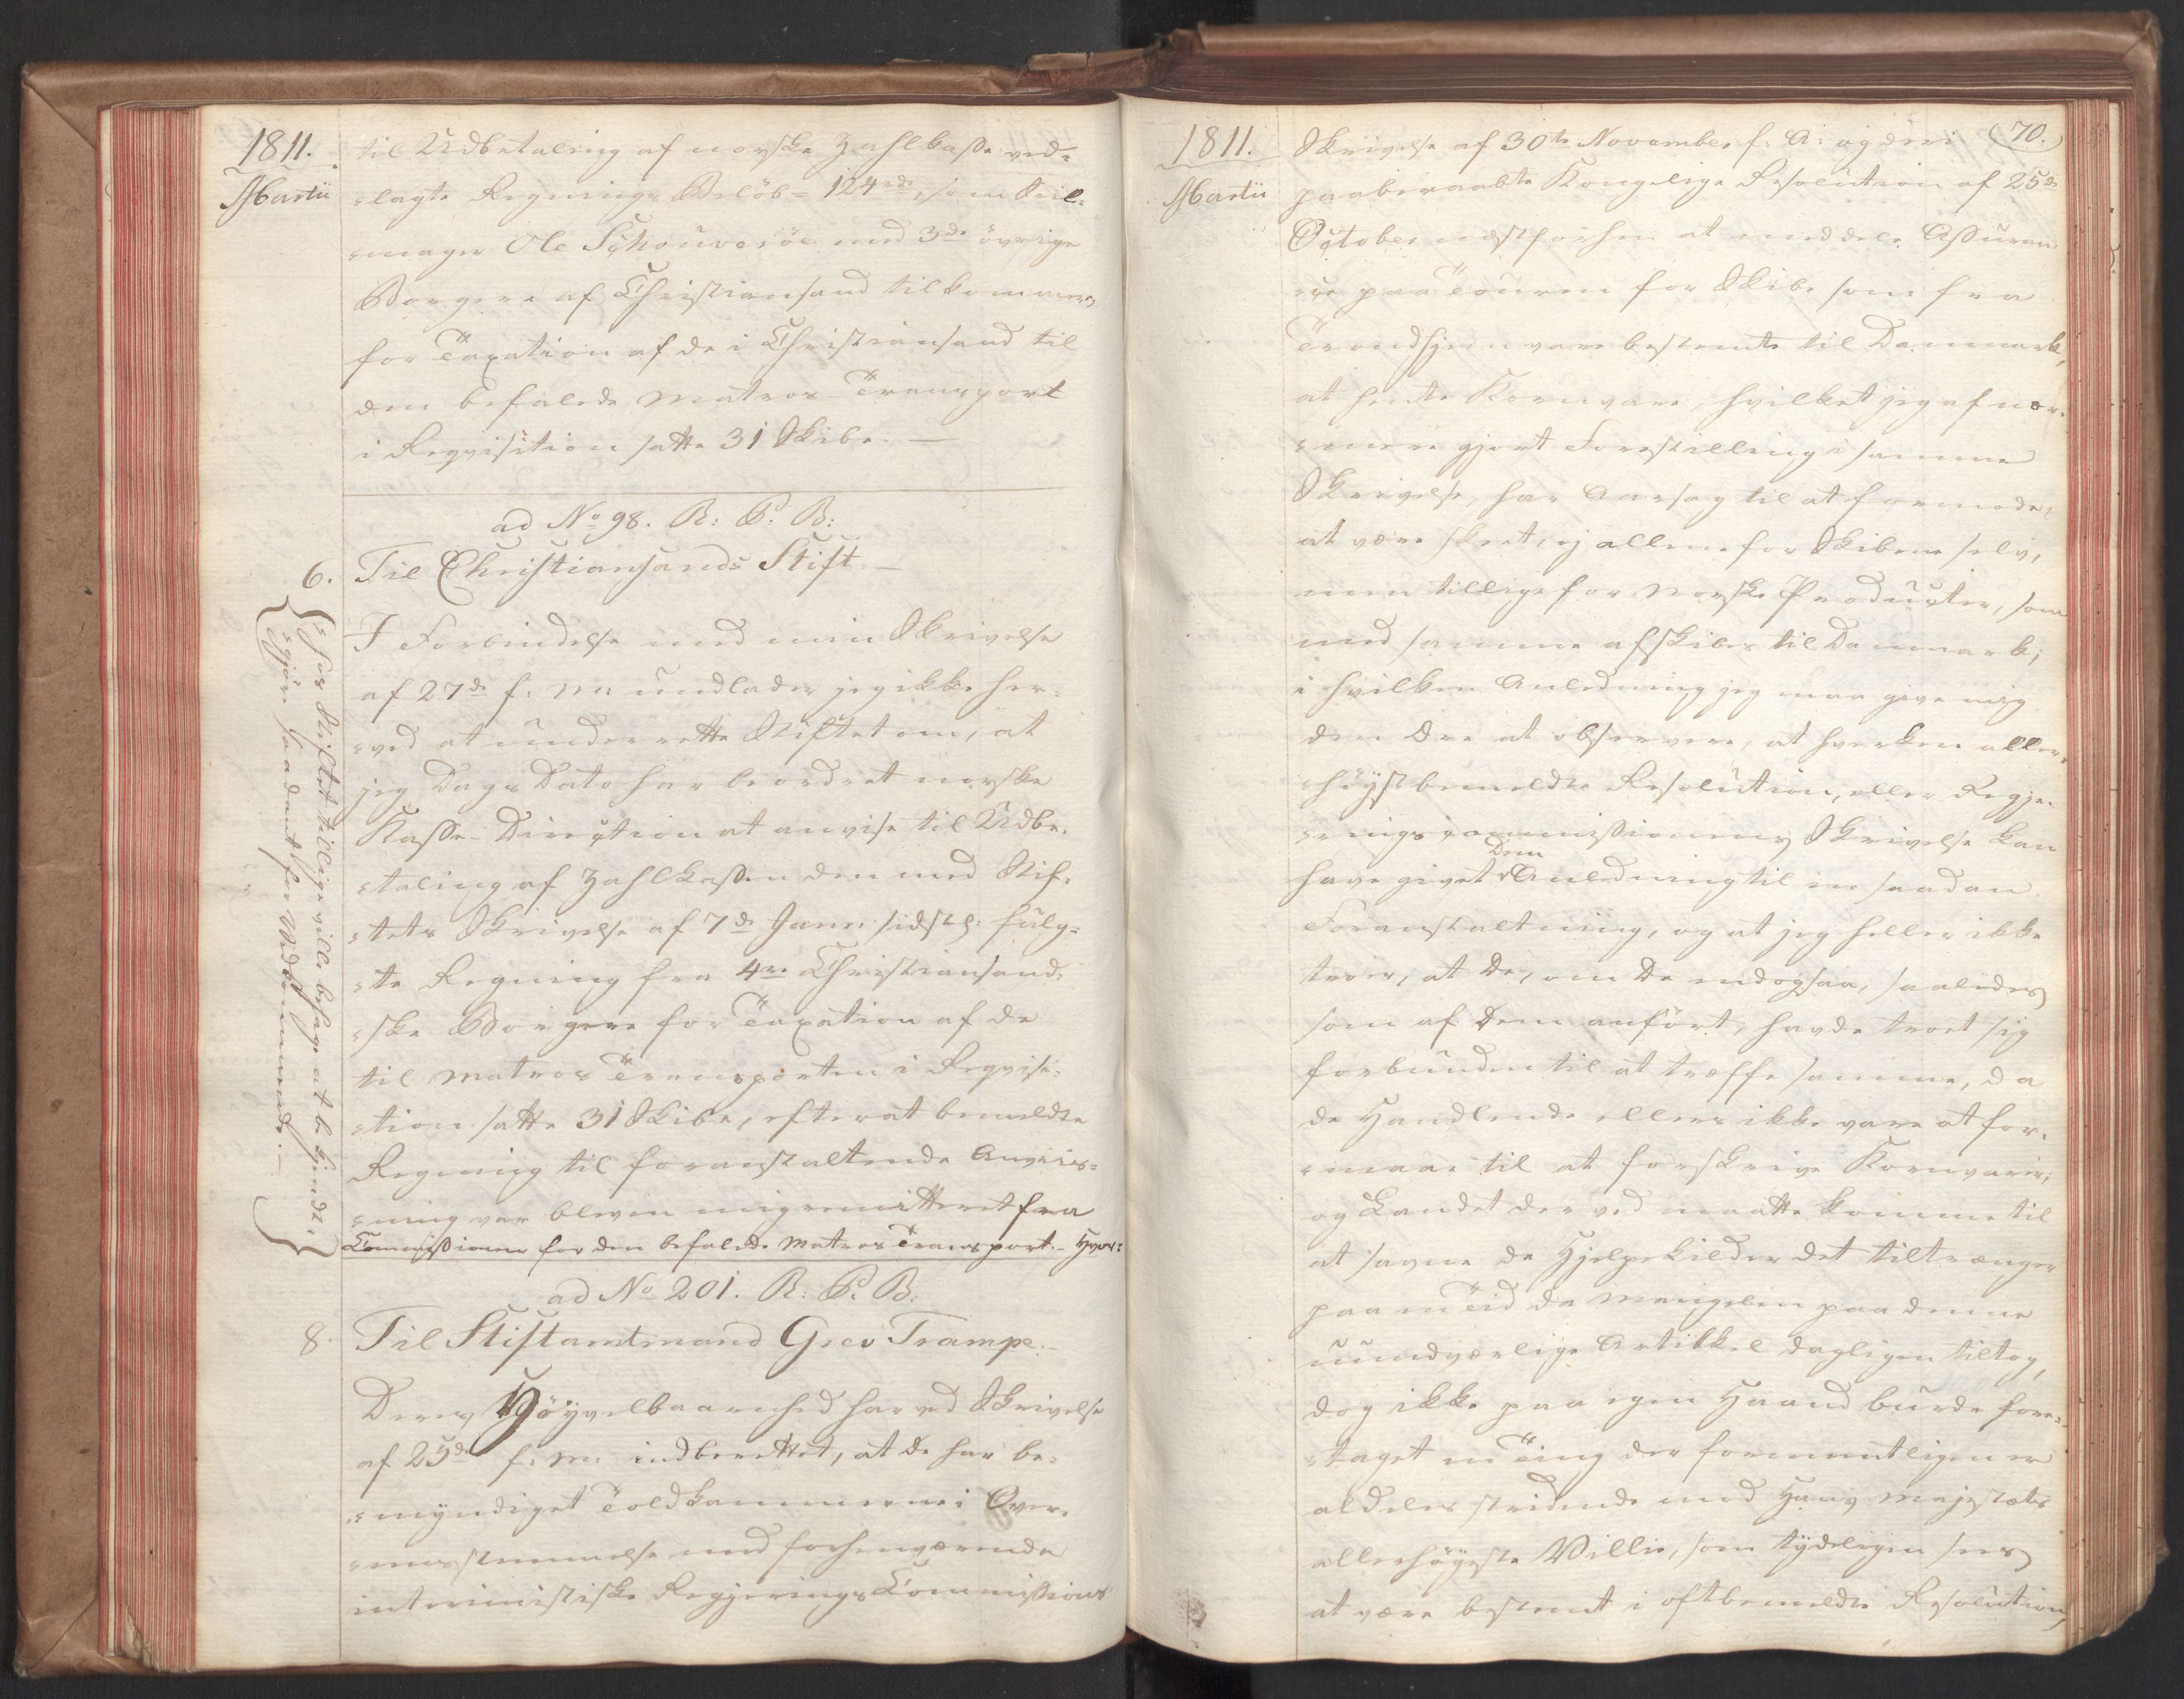 1811.
Martii
til Udbetaling af norske Zahlkasse ved-
-lagte Regnings Beløb = 124 rd, som Seil-
-mager Ole Schouverøe med 3de övrige
Borgere af Christiansand tilkommer,
for Taxation af de i Christiansand til
den befalede Matros-Transport
i Reqvisition satte 31 Skibe. —
ad No 98. R: P: B:
6. Til Christiansands Stift. —
I Forbindelse med min Skrivelse
af 27de f: M: undlader jeg ikke her-
-ved at underrette Stiftet om, at
jeg Dags Dato har beordret norske
Kasse-Direction at anvise til Udbe-
-taling af Zahlkassen den med Stif-
-tets Skrivelse af 7de Janr: sidstl: fulg-
-te Regning fra 4re Christiansand-
-ske Borgere for Taxation af de
til Matros Transporten i Reqvisi-
-tion satte 31 Skibe, efterat bemeldte
Regning til foranstaltende Anviis-
-ning var bleven mig remitteret fra
Commissionen for den befalede Matros Transport. – Hvor-
-for Stiftet tillige ville behage at bekjendt-
-gjöre saadant for Vedkommende. —
ad No 201. R: P: B:
8. Til Stiftamtmand Grev Trampe. –
Deres Höyvelbaarenhed har ved Skrivelse
af 25de f: M: indberettet, at De har be-
-myndiget Toldkammerne i Over-
-eensstemmelse med forhenværende
interimistiske Regjerings Commissions
1811.
Martii
(70.)
Skrivelse af 30te November f: A: og deri
paaberaabte Kongelige Resolution af 25de
October næstforhen at meddele Assuran-
-ce paa Touren for Skibe som fra
Trondhjem vare bestemte til Danmark,
at hente Kornvare, hvilket jeg af nær-
-mere gjort Forestilling i samme
Skrivelse, har Aarsag til at formode,
at være skeet, ej allene for Skibene selv,
men tillige for Norske Producter, som
med samme afskibes til Danmark;
i hvilken Anledning jeg maa give mig
den Ære at observere, at hverken aller-
-höyst bemeldte Resolution, eller Regje-
-ringscommissionens Skrivelse kan
have givet Dem Anledning til en saadan
Foranstaltning, og at jeg heller ikke
troer, at De, om De endogsaa, saaledes
som af Dem anført, havde troet sig
forbunden til at træffe samme, da
de Handlende ellers ikke vare at for-
-maae til at forskrive Kornvarer,
og Landet derved maatte komme til
at savne de Hjelpekilder det tiltrænger
paa en Tid da Mangelen paa denne
uundværlige Artikkel dagligen tiltog,
dog ikke paa egen Haand burde fore-
-taget en Ting der formentligen er
aldeles stridende med Hans Majestæts
allerhöyeste Villie, som tydeligen sees
at være bestemt i oftbemeldte Resolution,